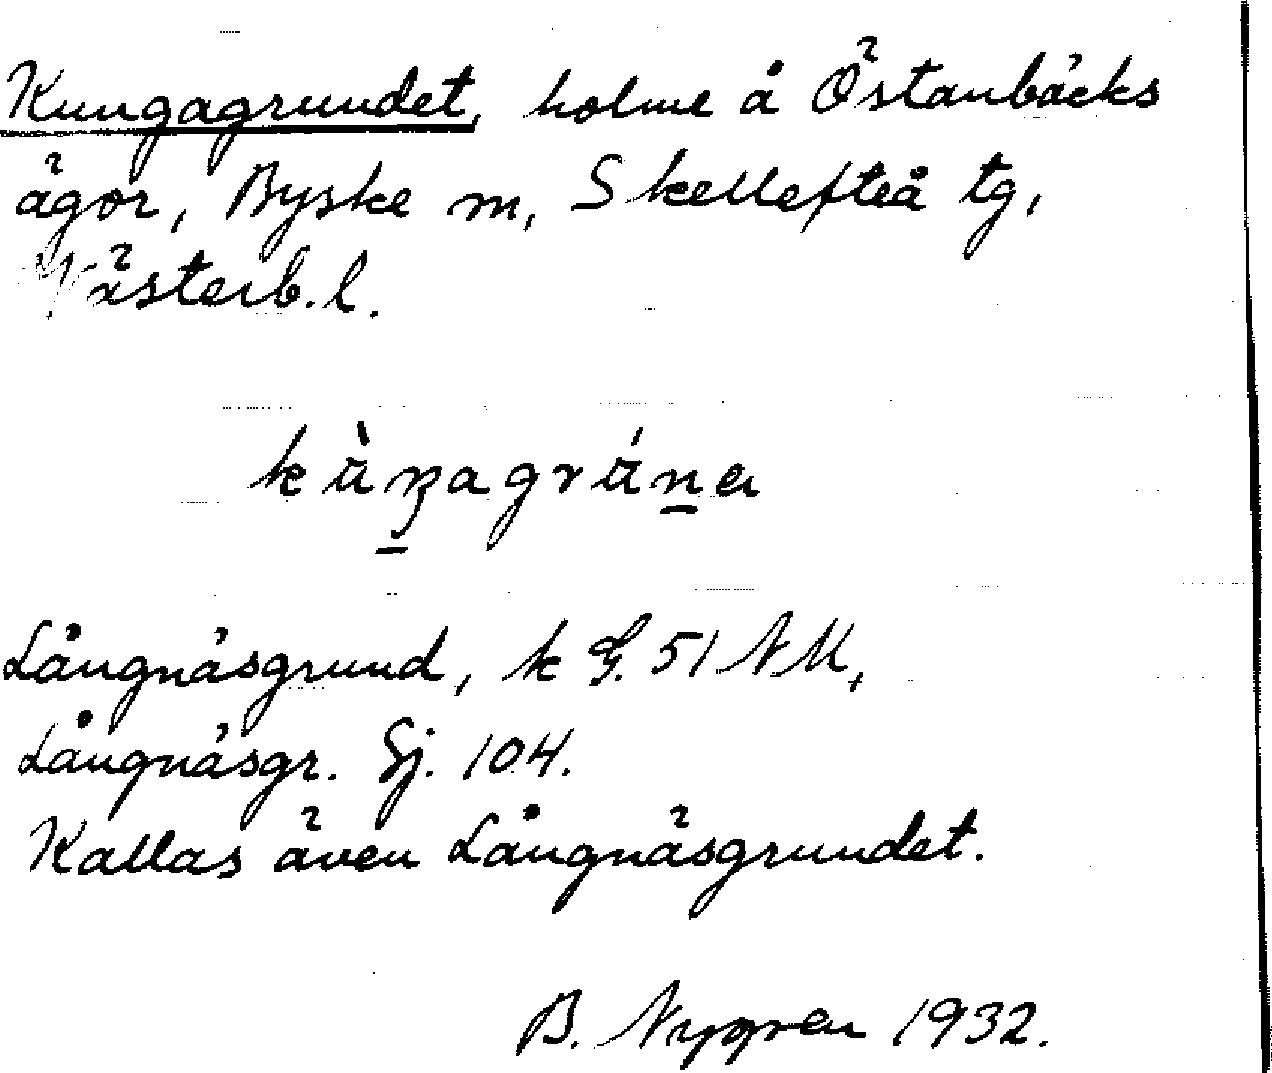 Kungagrundet, holme å Östanbäcks
ägor, Byske sn, Skellefteå tg,
Västerb. l.
Långnäsgrund, k G. 51 NM,
Långnäsgr. Sj. 104.
Kallas även Långnäsgrundet.
B. Nygren 1932.